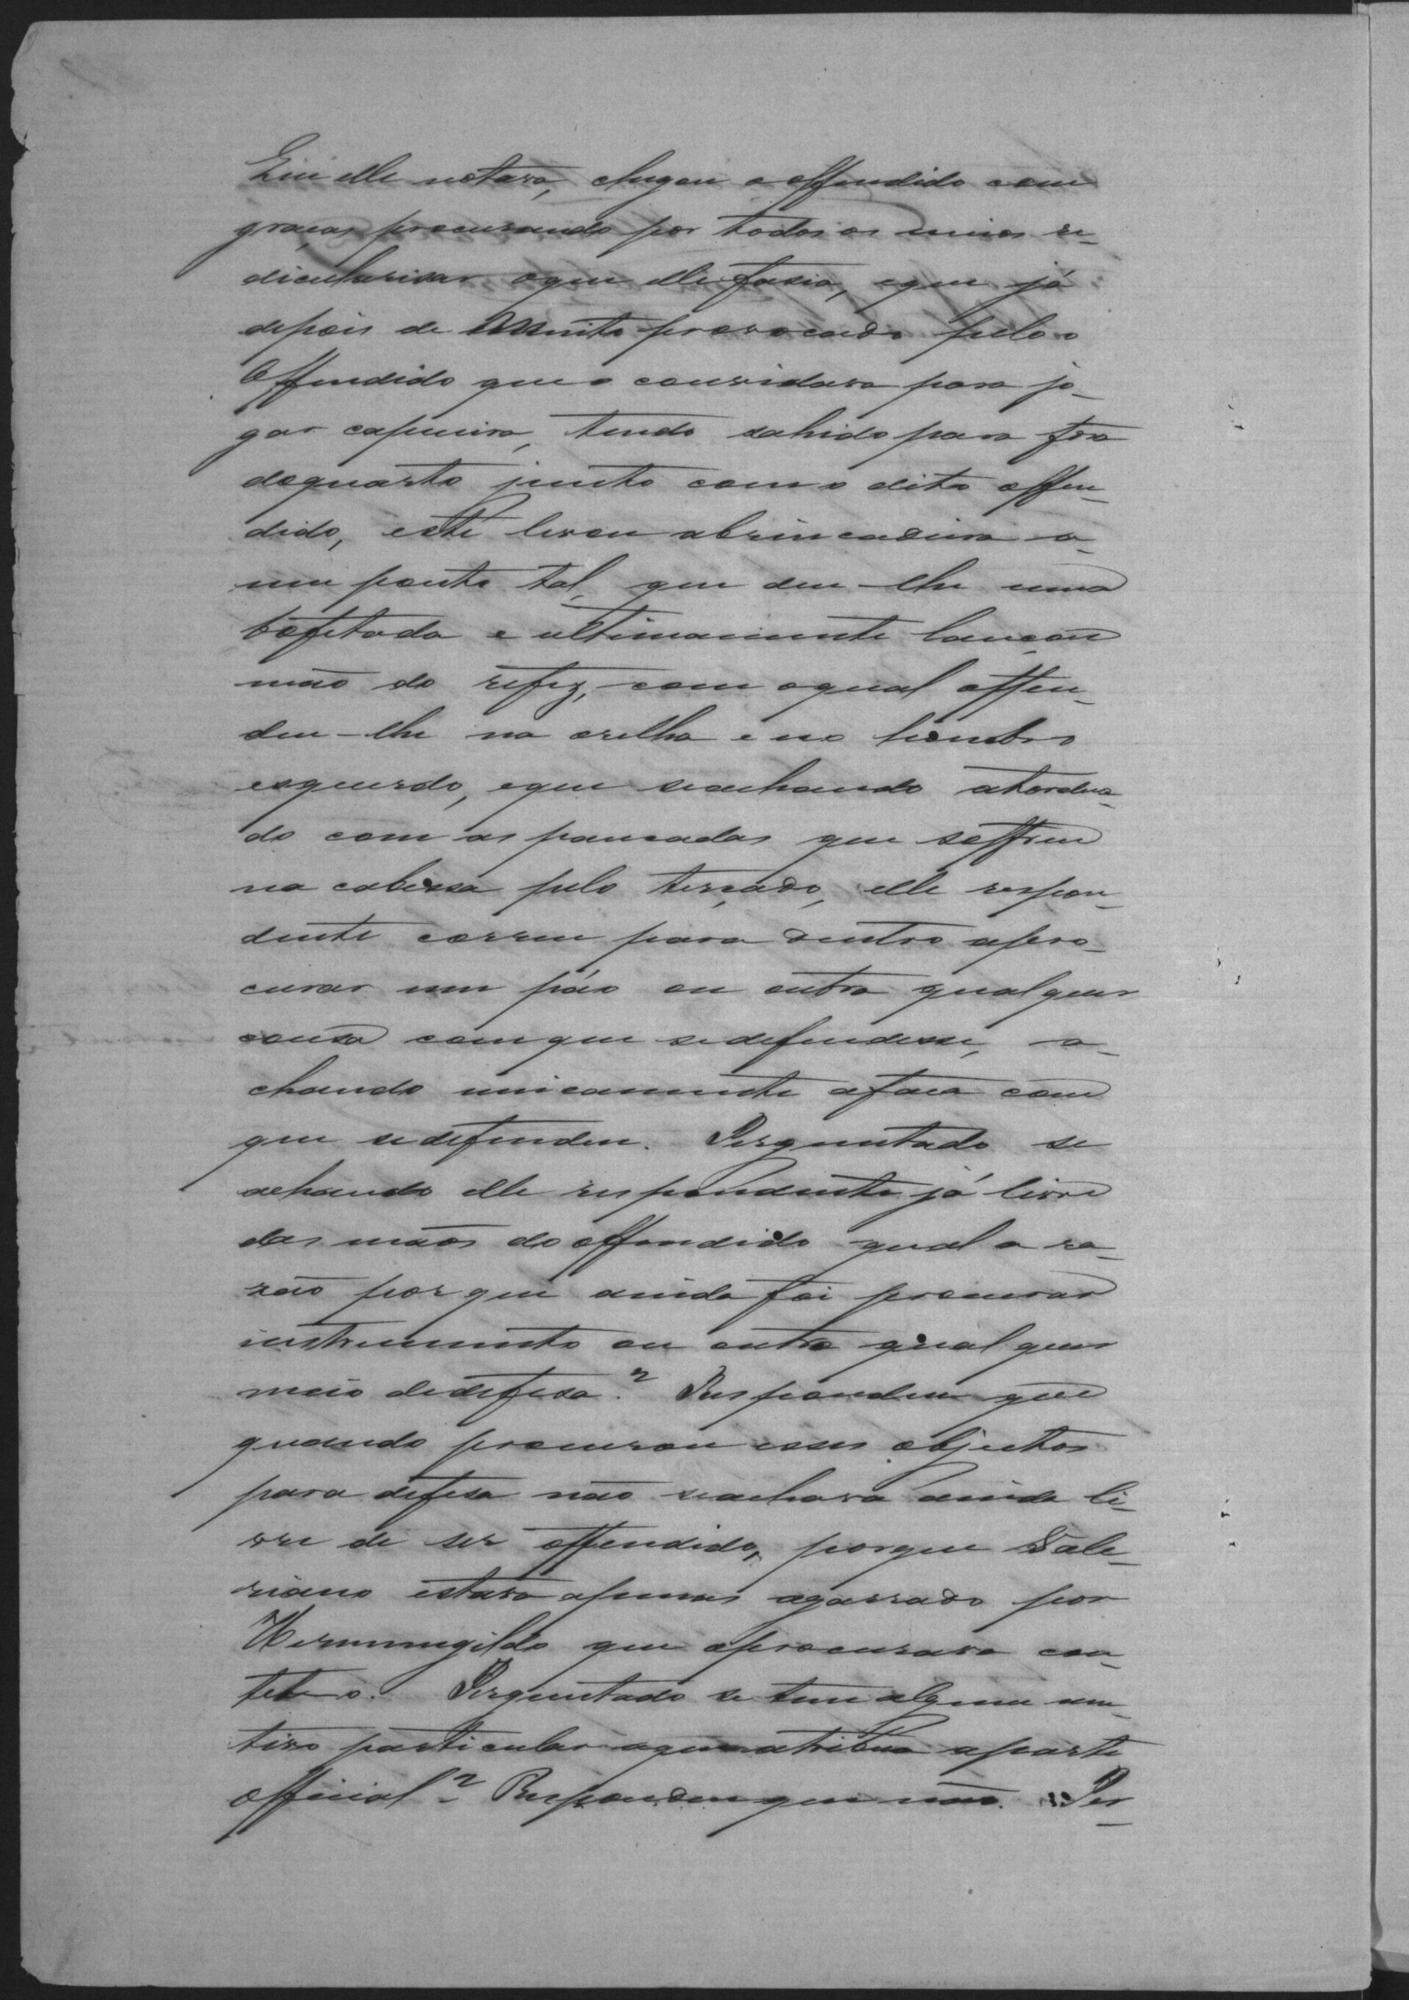 elle notava, chegou o offendido com
graças procurando por todos os meios re-
dicularisar oque elle fasia, eque já
depois de Muito provocado pelo o
Offendido que o convidara para jo-
gar capueira, tendo sahido para fora
doquarto junto com o dito offen-
dido, este levou abrincadeira a
um ponto tal, que deu-lhe uma
bofetada e ultimamente lançou
mão do refiz, com oqual offen-
deu-lhe na orelha e no hombro
esquerdo, eque seachando atordua-
do com as pancadas que soffreu
na cabessa pelo terçado, elle respon-
dente correu para dentro apro-
curar um páo ou outra qualquer
cousa comque sedefendesse, a-
chando unicamente afaca com
que sedefendeu. Perguntado se
achando elle respondente já livre
das mãos do offendido qual a ra-
zão porque ainda foi procurar
instrumento ou outro qualquer
meio dedefesa? Respondeu que
quando procurou esses objectos
para defesa não seachava ainda li-
vre de ser offendido, porque Vale-
riano estava apenas agarrado por
Hermenegildo que oprocurava con-
tel-o. Perguntado se tem algum mo-
tivo particular aque atribua aparte
official? Respondeu que não. Per-